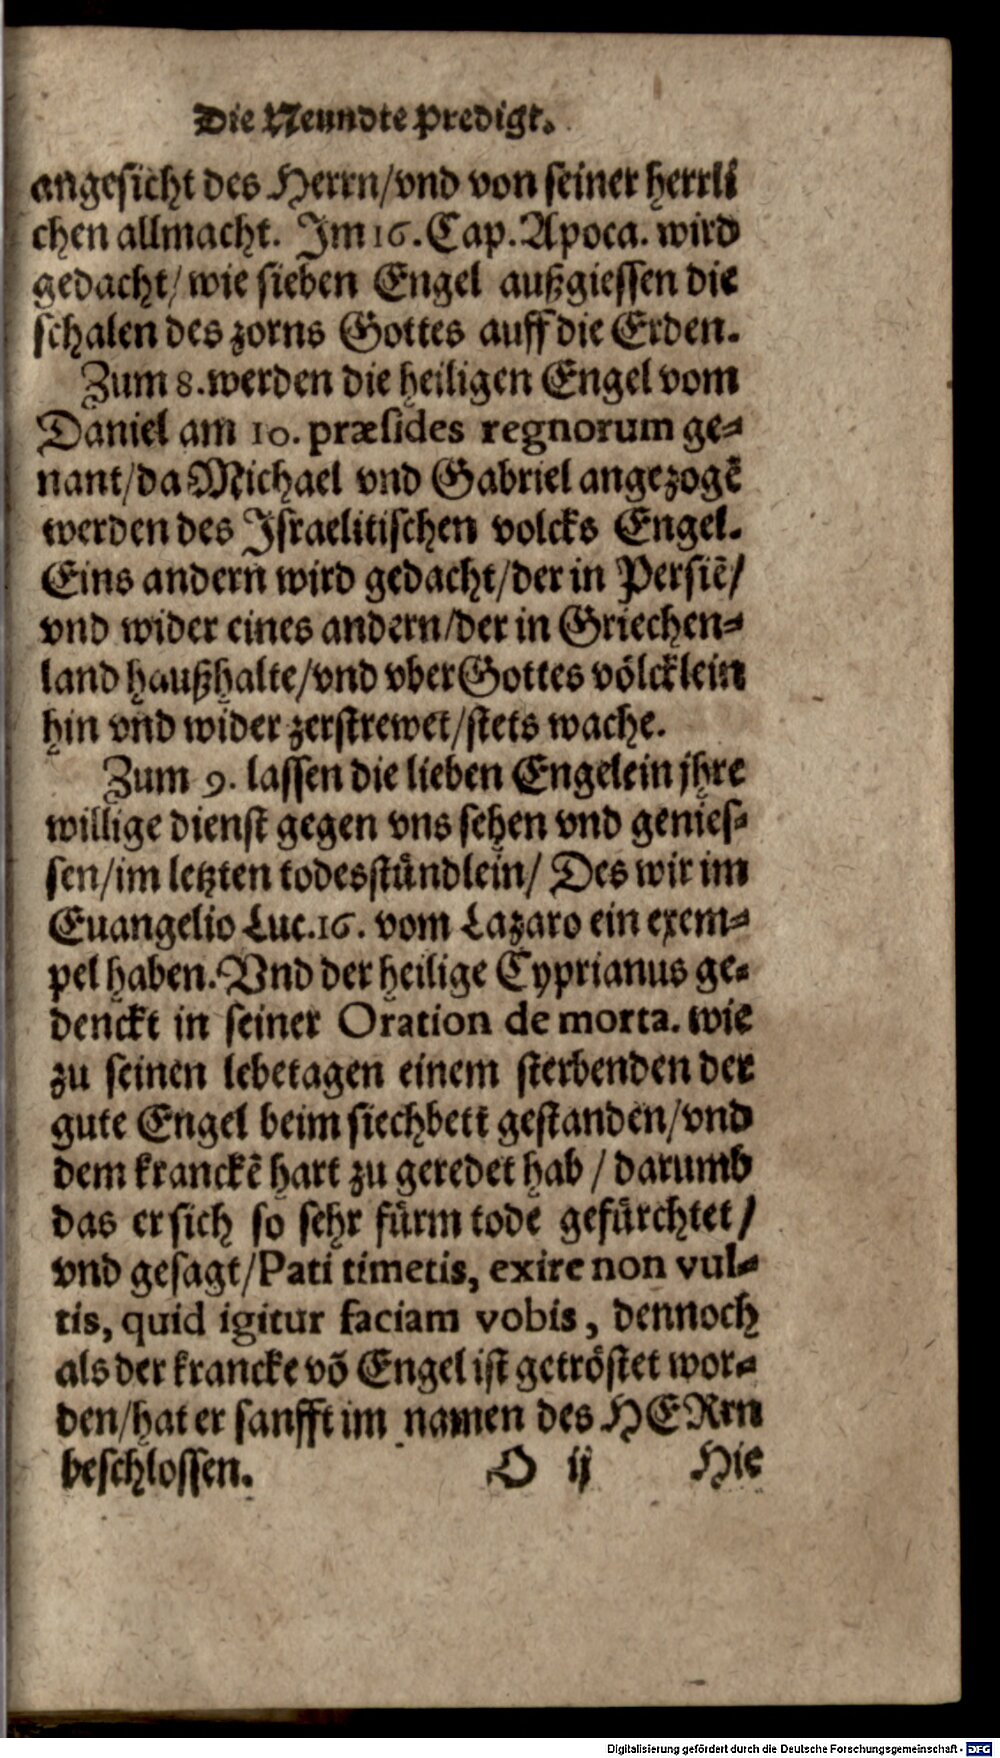 Die Neundte Predigt.
angesicht des Herrn/vnd von seiner herrli
chen allmacht. Im 16. Cap. Apoca. wird
gedacht/wie sieben Engel außgiessen die
schalen des zorns Gottes auff die Erden.
Zum 8. werden die heiligen Engel vom
Daniel am 10. præsides regnorum ge-
nant/da Michael vnd Gabriel angezogē
werden des Israelitischen volcks Engel.
Eins andern wird gedacht/der in Persiē/
vnd wider eines andern/der in Griechen-
land haußhalte/vnd vber Gottes völcklein
hin vnd wider zerstrewet/stets wache.
Zum 9. lassen die lieben Engelein jhre
willige dienst gegen vns sehen vnd genies-
sen/im letzten todesstündlein/ Des wir im
Euangelio Luc. 16. vom Lazaro ein exem-
pel haben. Vnd der heilige Cyprianus ge-
denckt in seiner Oration de morta. wie
zu seinen lebetagen einem sterbenden der
gute Engel beim siechbett gestanden/vnd
dem kranckē hart zu geredet hab / darumb
das er sich so sehr fürm tode gefürchtet /
vnd gesagt/Pati timetis, exire non vul-
tis, quid igitur faciam vobis, dennoch
als der krancke võ Engel ist getröstet wor-
den/hat er sanfft im namen des HERrn
beschlossen. O ij Hie
Digitalisierung gefördert durch die Deutsche Forschungsgemeinschaft - DFG